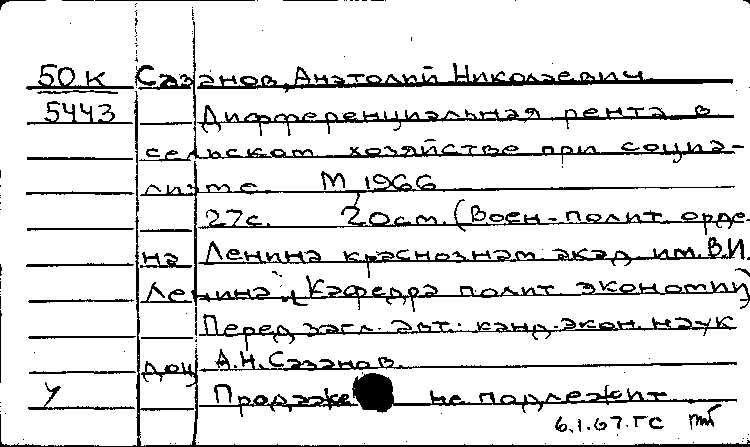 50К Сазанов, Анатолий Николаевич
5443 Дифференциальная рента в
сельском хозяйстве при социа-
лизме. М, 1966
27с. 20 см. (Воен-полит. орде-
на Ленина краснознам. акад. им. В.И.
Ленина. Кафедра полит. экономии)
Перед загл. авт.: канд. экон. наук
доц А.Н. Сазанов.
У Продаже не подлежит.
6.1.67. ГС